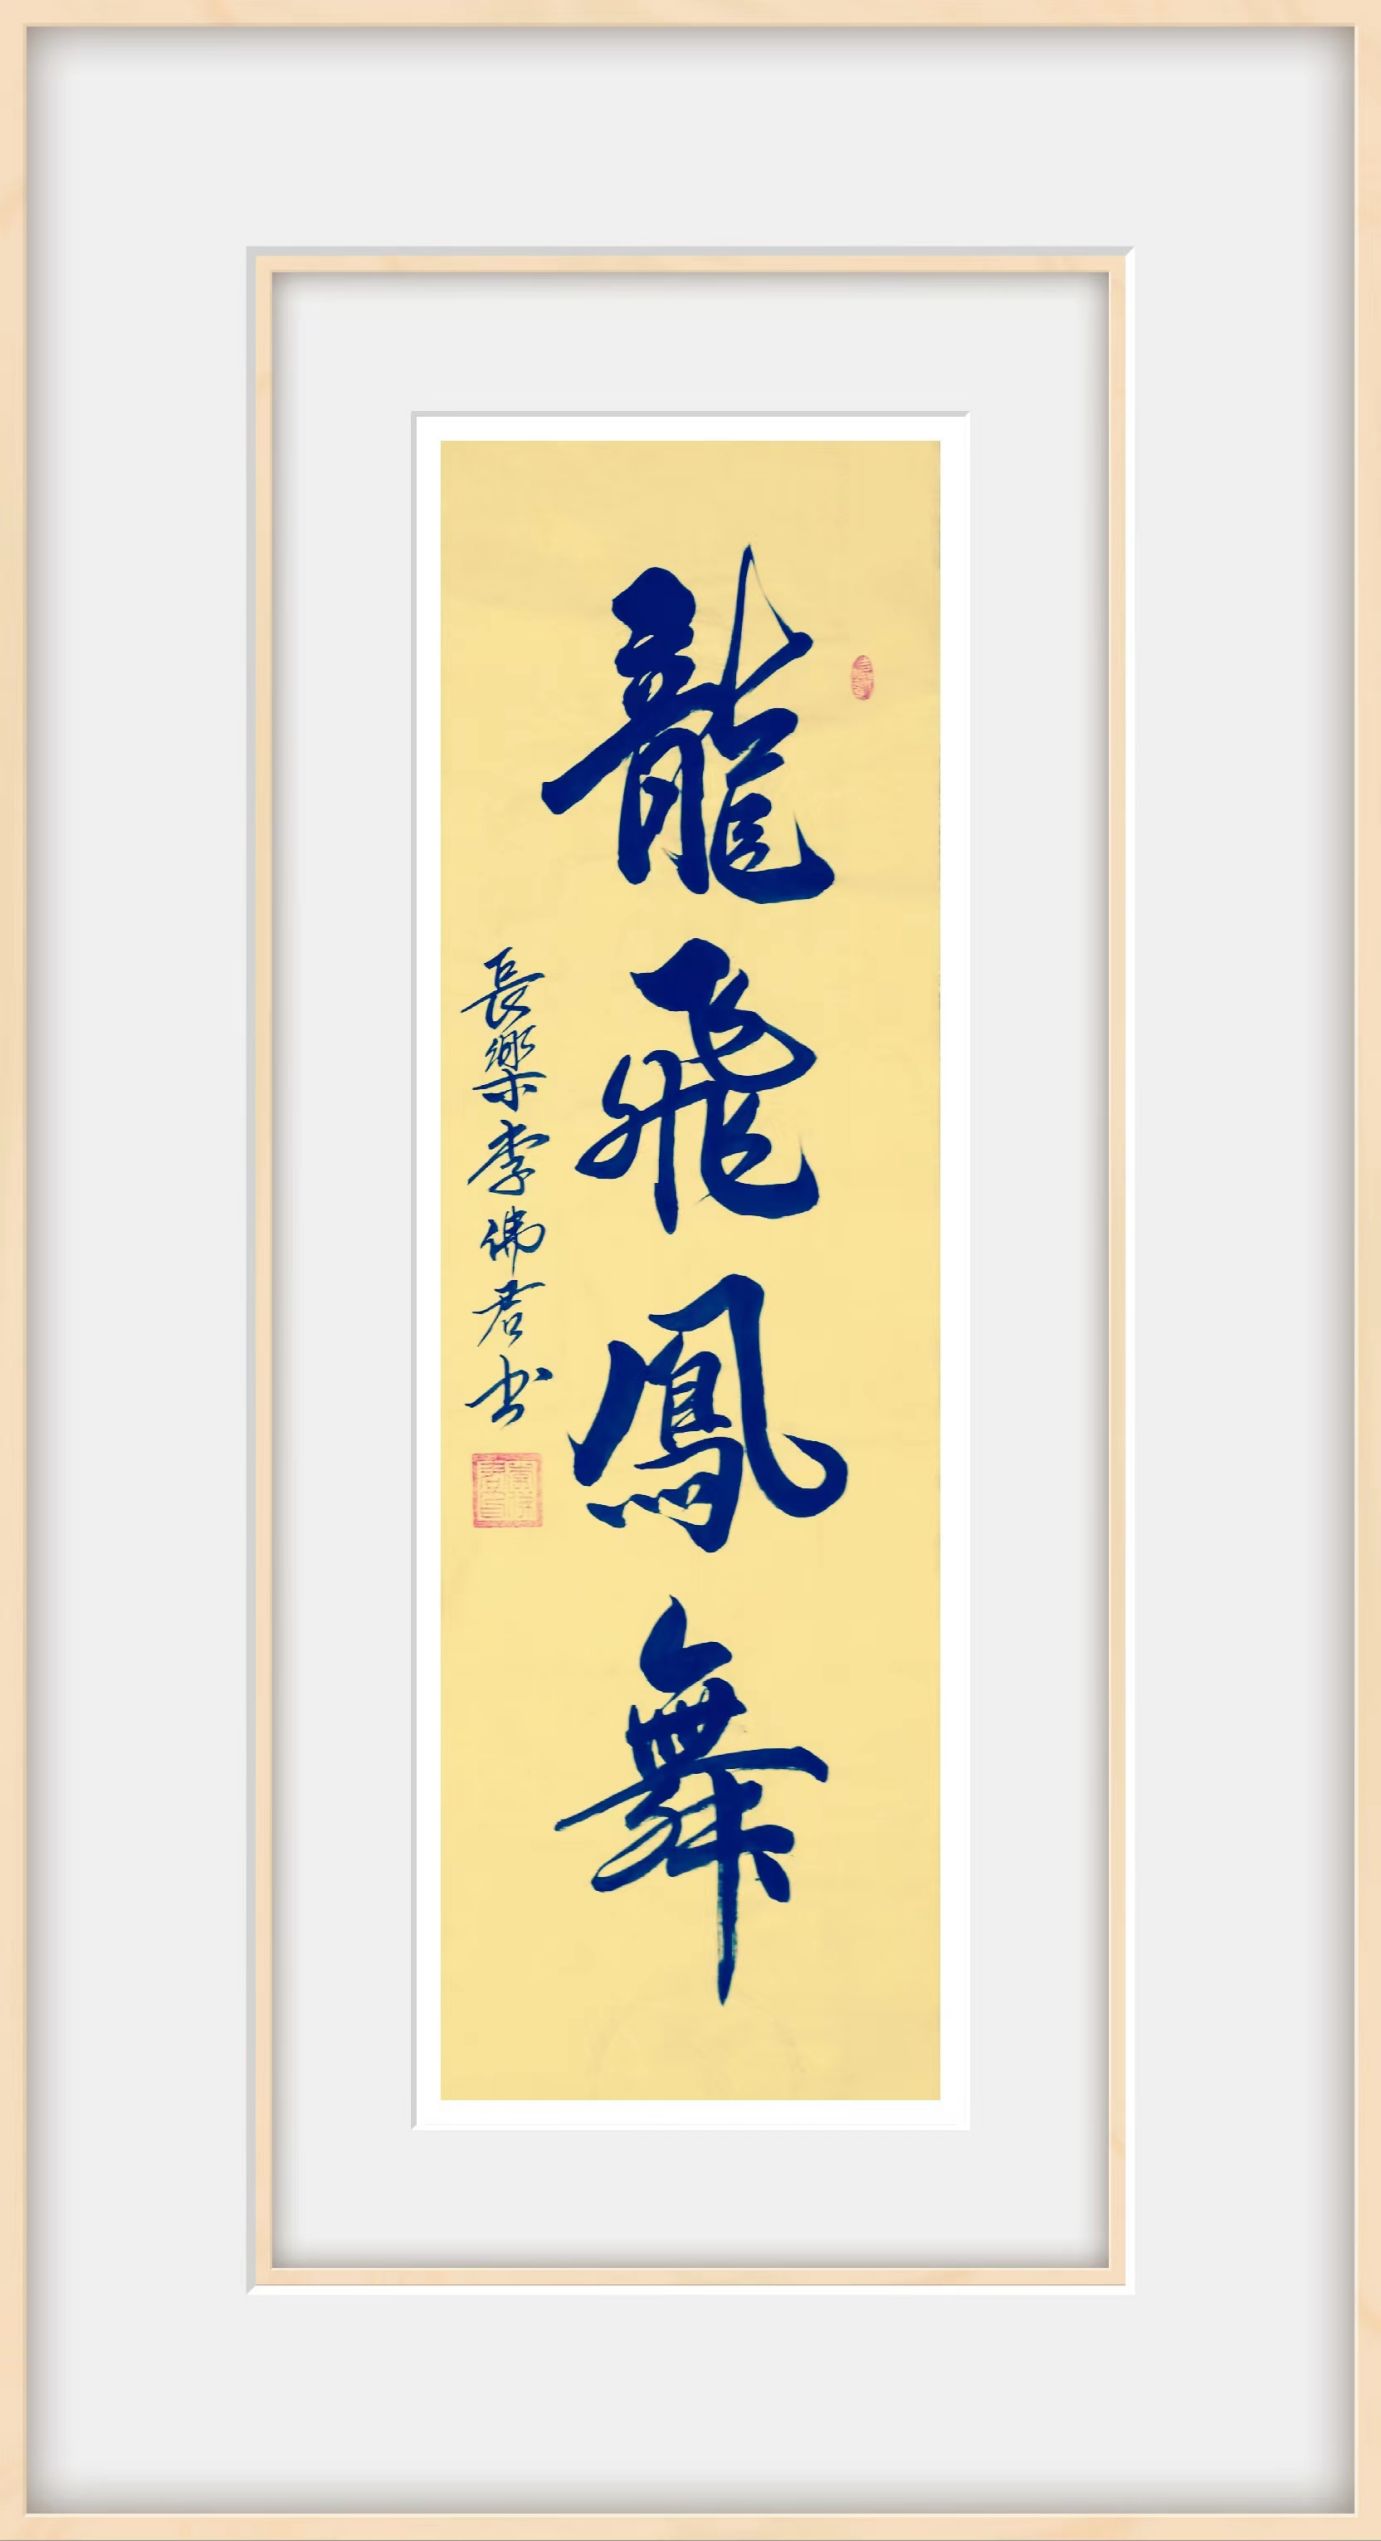 龍飛鳳舞
長樂李佛君书